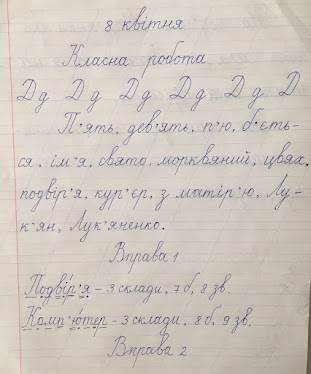 8 квітня
Класна робота
Д д Д д Д д Д д Д д Д
П'ять, дев'ять, п'ю, б'єть-
ся, ім'я, свято, морквяний, цвях,
подвір'я, кур'єр, з матір'ю, Лу-
к'ян, Лук'яненко.
Вправа 1
Подвíр'я – 3 склади, 7 б, 8 зв.
Комп'ю́тер – 3 склади, 8 б, 9 зв.
Вправа 2